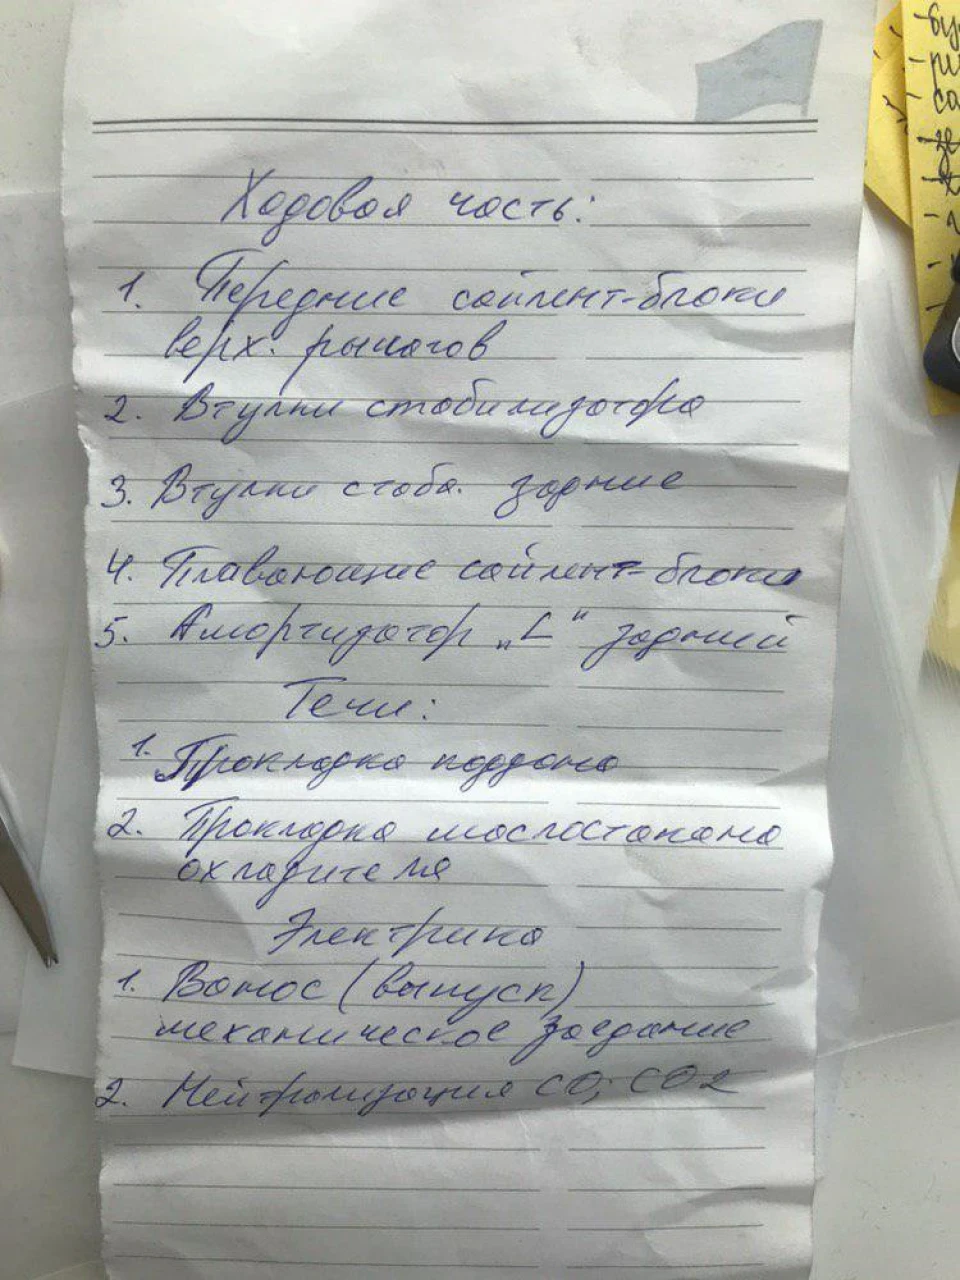 Ходовая часть:
1. Передние сайлент-блоки
верх. рычагов
2. Втулки стабилизатора
3. Втулки стаба. задние
4. Плавающие сайлент-блоки
5. Амортизатор „L“ задний
Течи:
1. Прокладка поддона
2. Прокладка маслостакана
охладителя
Электрика
1. Ванос (выпуск)
механическое заедание
2. Нейтрализация CO; CO2